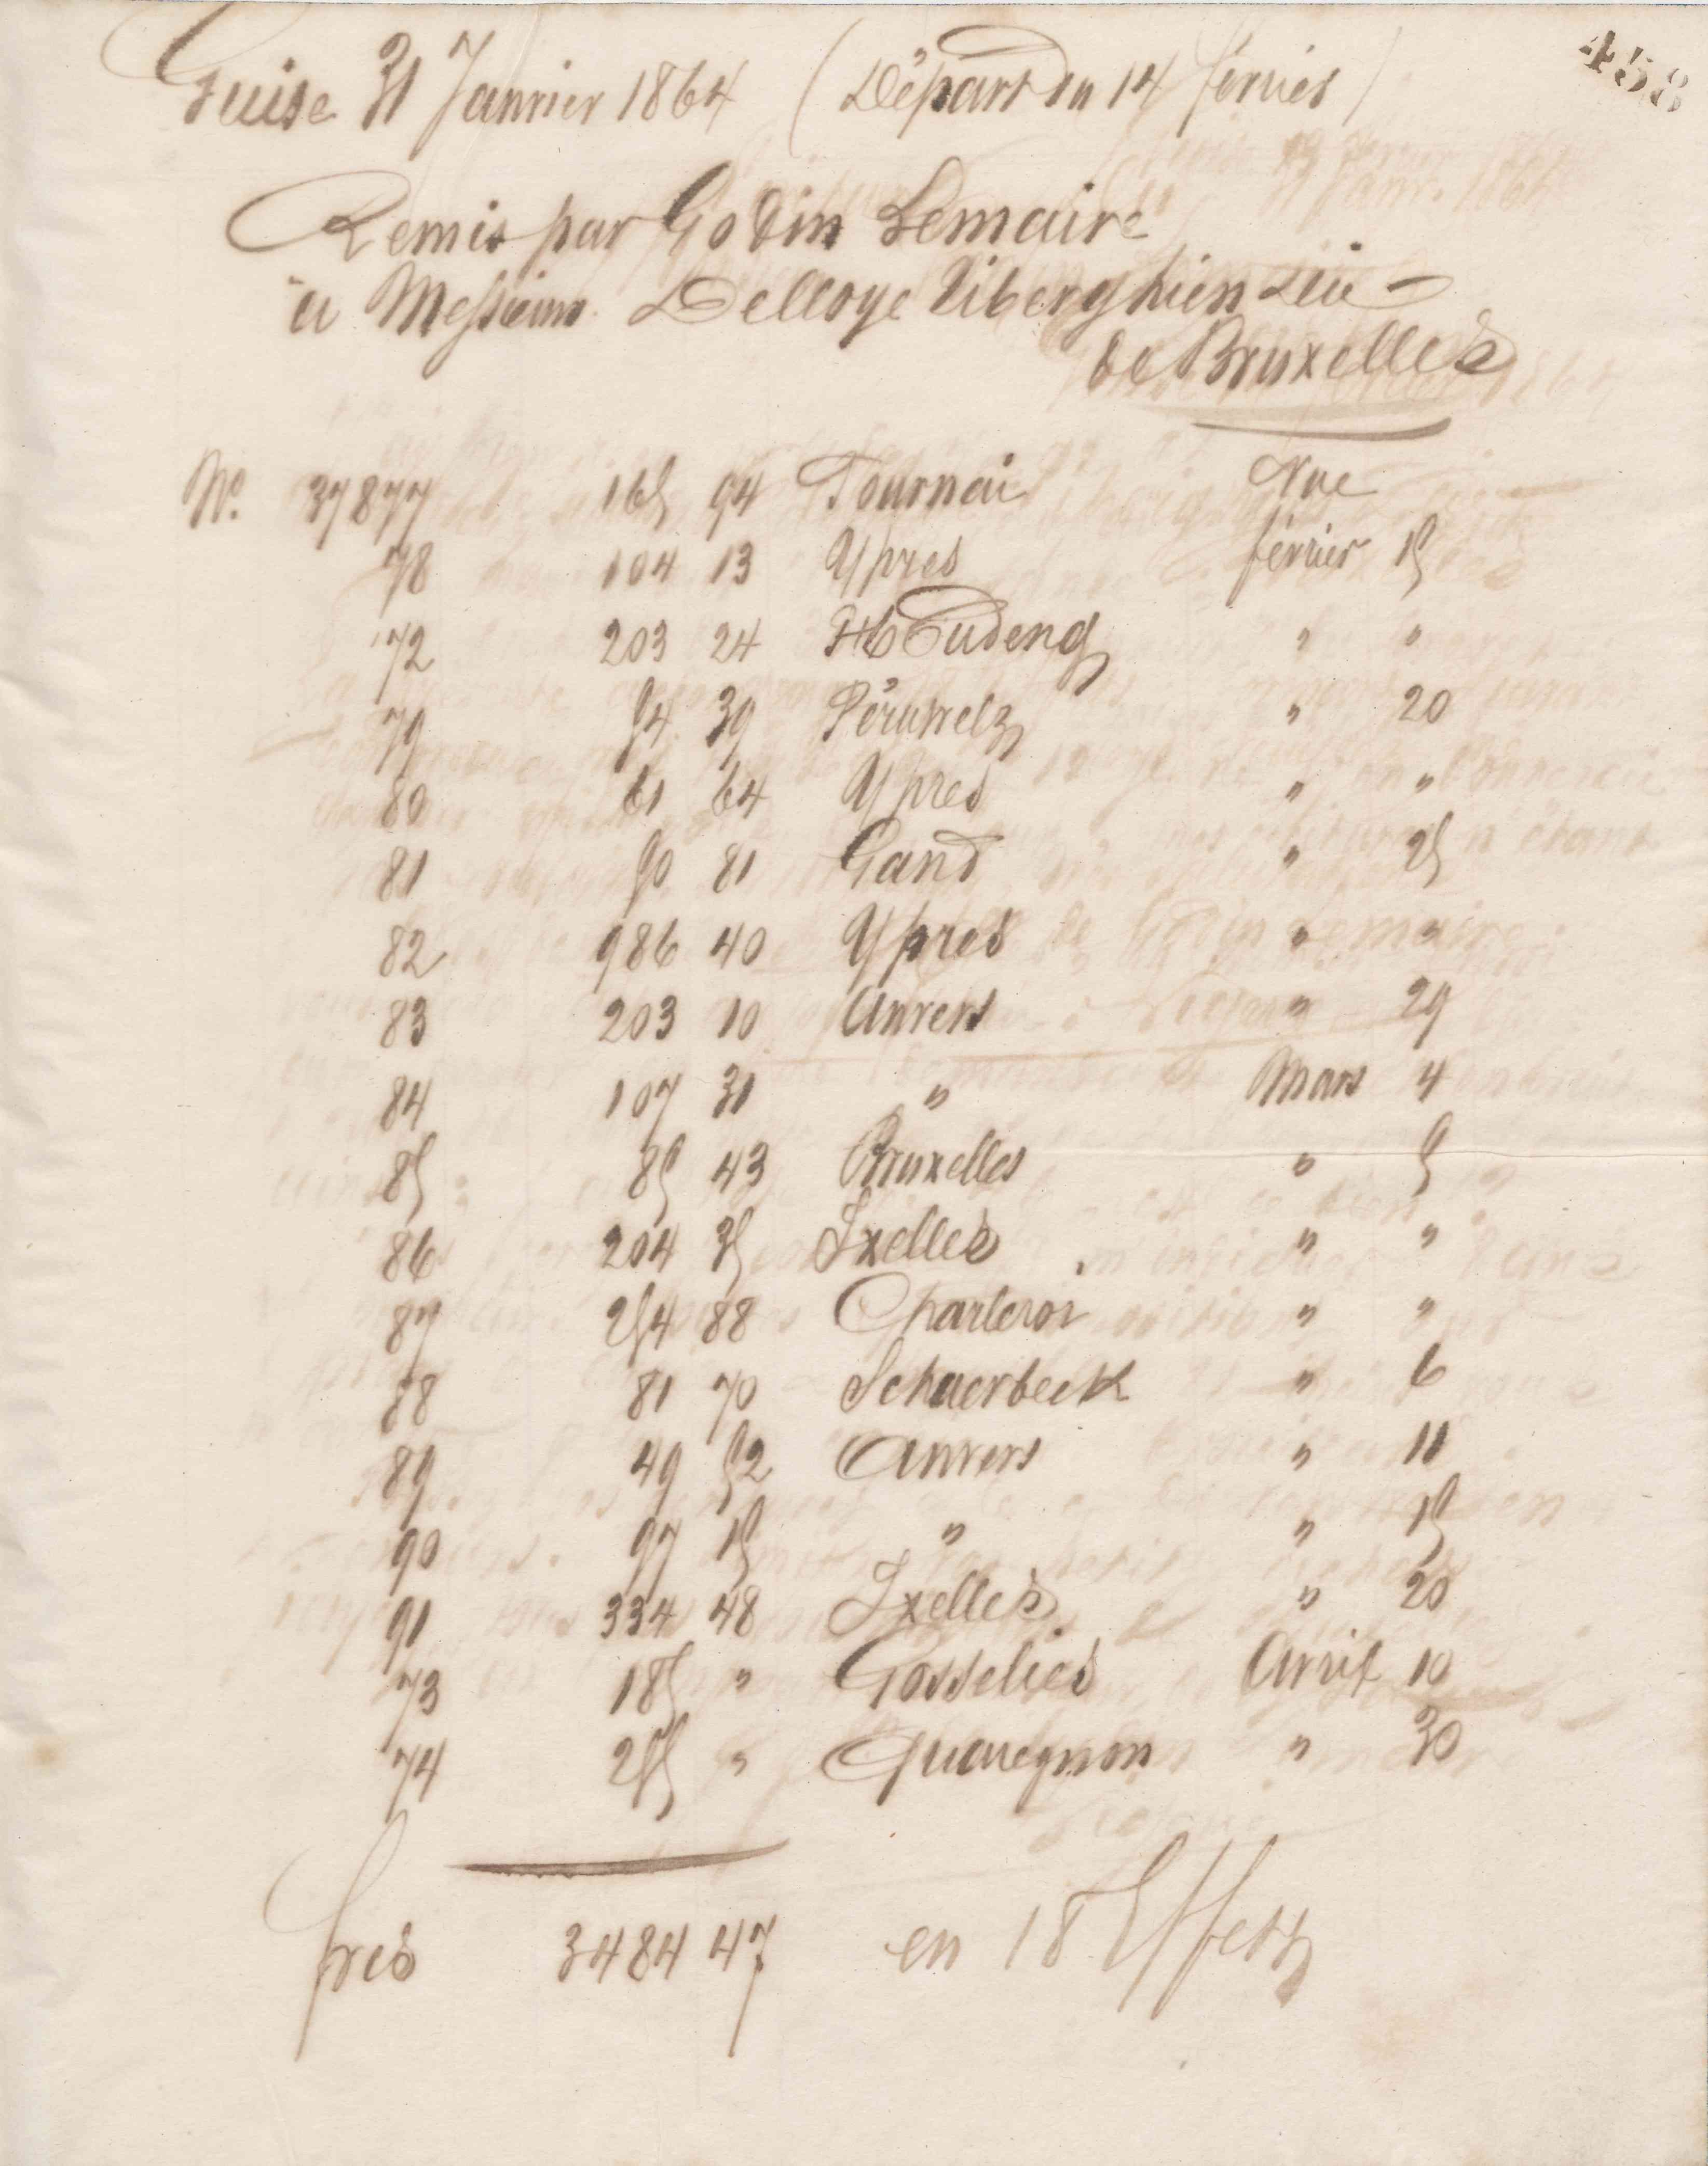 458
Guise 31 Janvier 1864 (Départ du 14 février)
Remis par Godin Lemaire
à Messieurs Delloye Tiberghien & Cie
de Bruxelles
No. 37877 165 94 Tournai Vue
78 104 13 Ypres février 15
72 203 24 Houdeng " "
79 54 39 Péruwelz " 20
80 61 64 Ypres " "
81 50 81 Gand " 25
82 986 40 Ypres " "
83 203 10 Anvers " 29
84 107 31 " Mars 4
85 85 43 Bruxelles " 5
86 204 35 Ixelles " "
87 254 88 Charleroi " "
88 81 70 Schaerbeek " 6
89 49 52 Anvers " 11
90 97 15 " " 15
91 334 48 Ixelles " 20
73 185 " Gosselies Avril 10
74 255 " Quaregnon " 30
frcs 3484 47 en 18 Effets